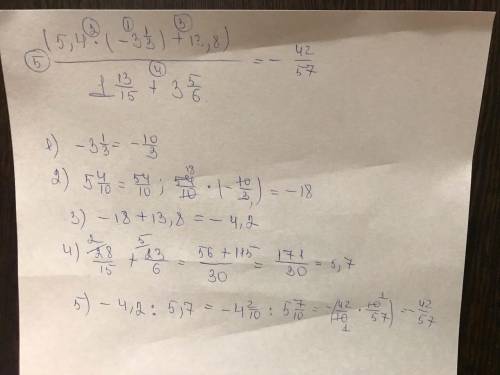 (5,4 · (-3 1/3) + 13,8) / (1 13/15 + 3 5/6) = - 42/57
1) -3 1/3 = - 10/3
2) 5 4/10 = 54/10 ; 54/10 · (- 10/3) = -18
3) -18 + 13,8 = -4,2
4) 28/15 + 23/6 = (56 + 115)/30 = 171/30 = 5,7
5) -4,2 : 5,7 = -4 2/10 : 5 7/10 = -(42/10 · 10/57) = - 42/57